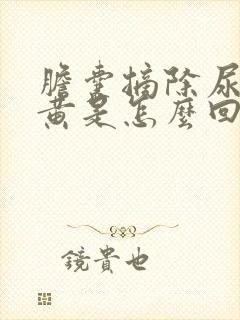 膽囊摘除尿
黃是怎麼回
鏡貴也